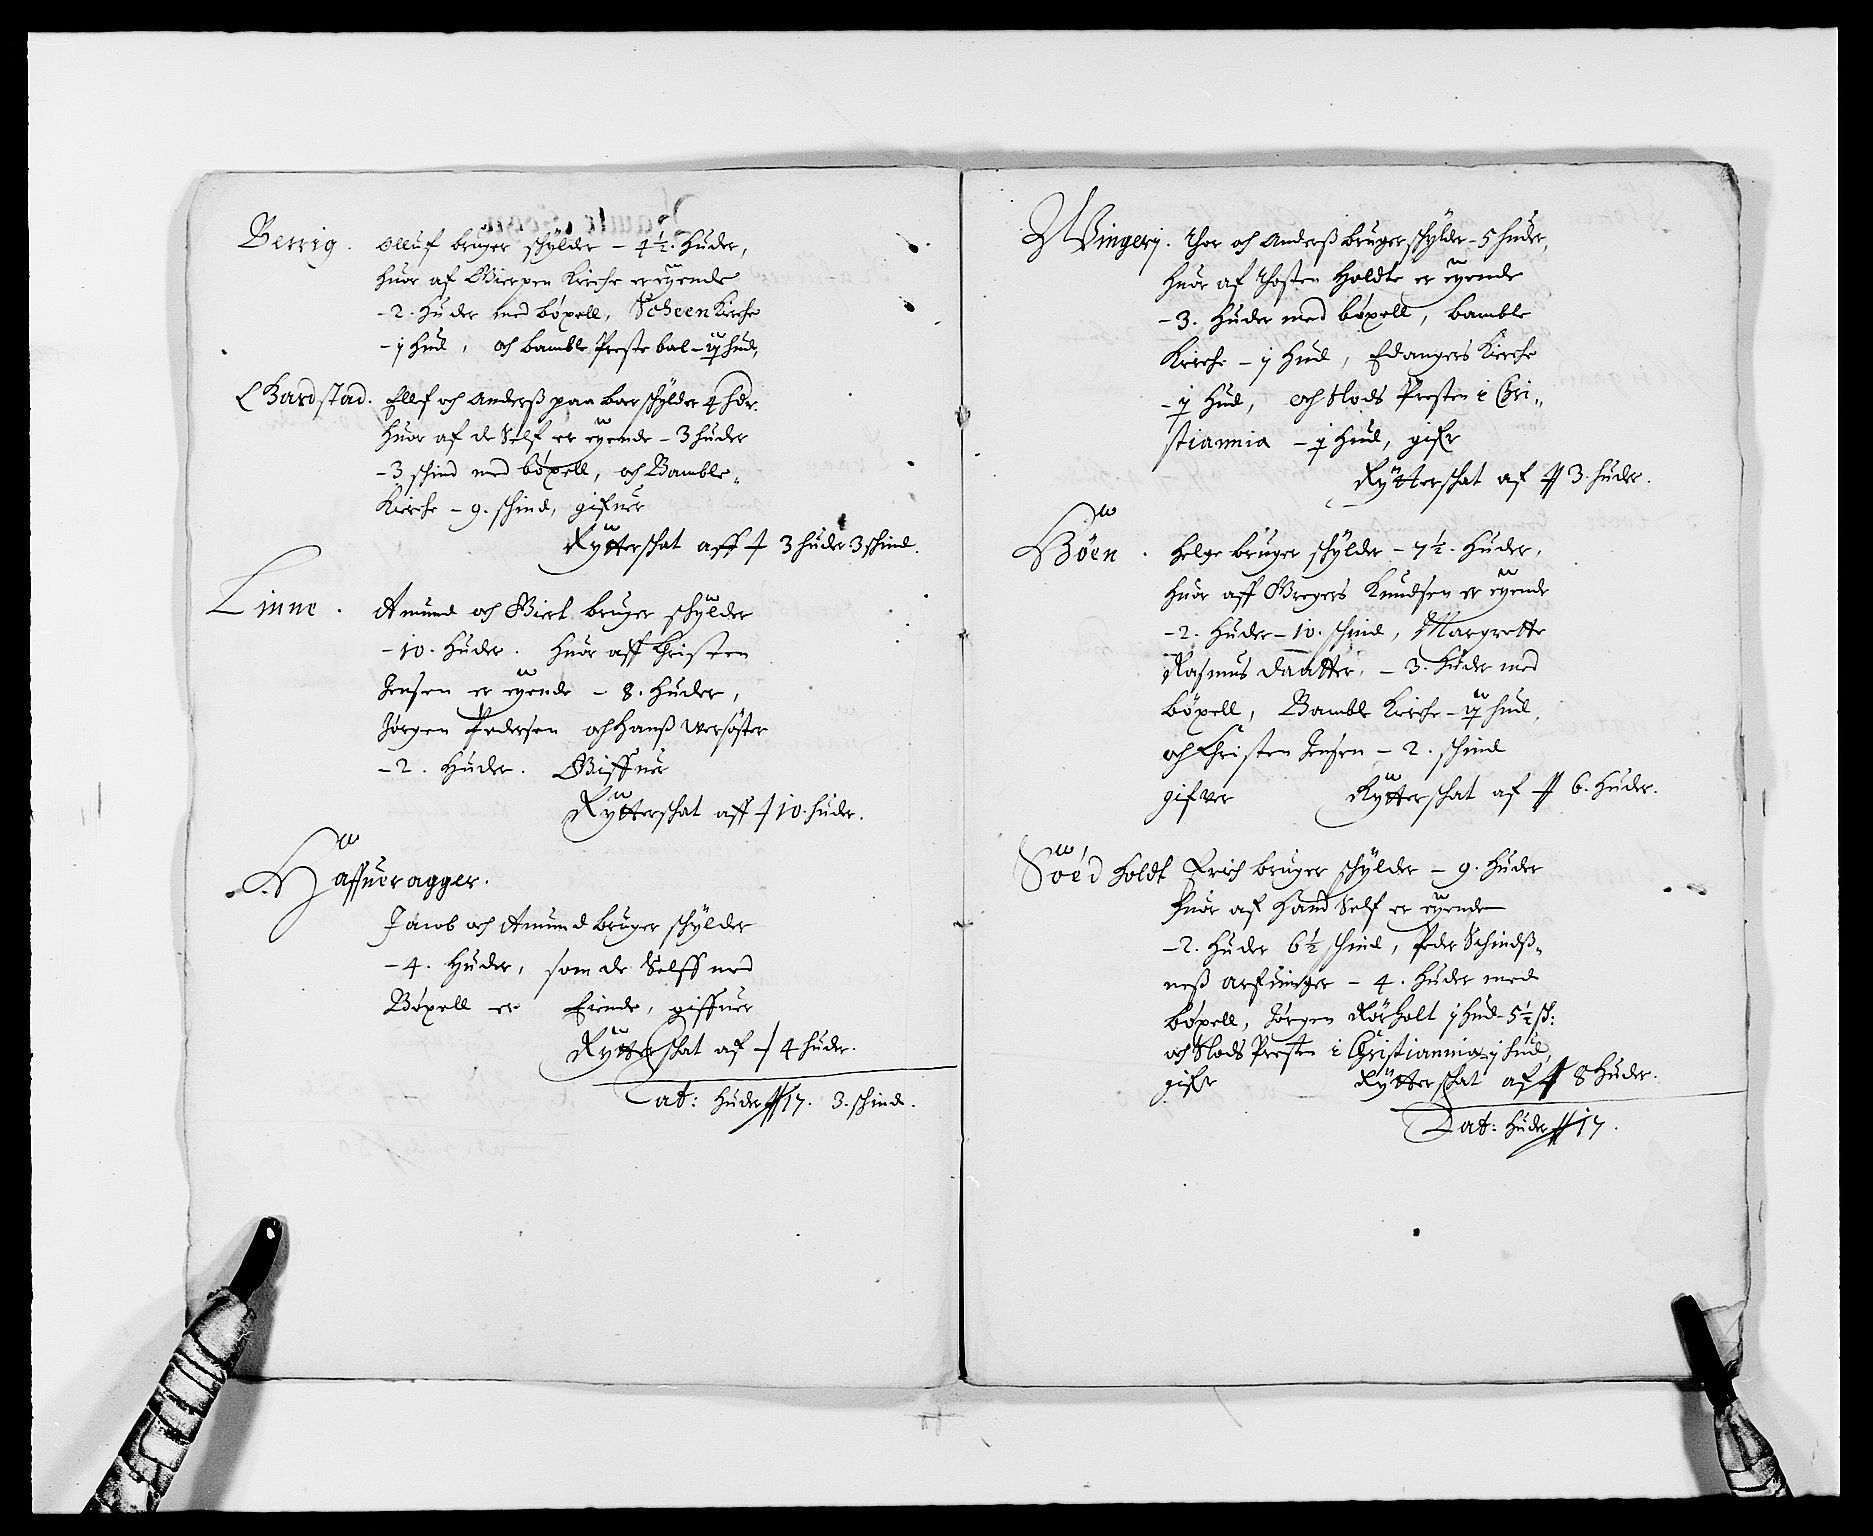 Berrig. olluf bruger schÿlder – 4½. Huder,
Huor af Gierpen Kirche er eÿende
– 2. Huder med böxell, Scheen Kirche
– j Hud, och Bamble Preste bol – ½ Hud,
Bardstad. Ellef och Anderß paa boer schÿlder 4 Hdr.
Huor af de Self er eÿende – 3 huder
– 3 schind med böxell, och Bamble
Kirche – 9. schind, gifuer
Rÿtterschat aff – 3 huder 3 schind.
Linne. Amund och Giert bruger schÿlder
– 10. Huder. Huor aff Christen
Jensen er eÿende – 8. Huder,
Jörgen Pedersen och Hanß wersöster
– 2. Huder. Giffuer
Rÿtterschat aff – 10. huder.
Haffuoragger.
Jacob och Amund bruger schÿlder
– 4. Huder, som de Selff med
Böxell er Eiende, giffuer
Rÿtterschat af – 4 huder.
Lat: Huder 17. 3. schind.
Wingerej. Thor och Anderß bruger schÿlder – 5 huder,
Huor af Thosten Holdte er eÿende
– 3. Huder med böxell, bamble
Kirche – j Hud, Edangers Kirche
– ½ Hud, och Slods Presten i Chri„
stiannia – ½ Hud, gifr
Rÿtterschat af 3. huder.
Böen. Helge bruger schÿlder – 7½. Huder,
Huor aff Gregers Knudsen er eÿende
– 2. Huder – 10. schind, Margrette
Rasmus daatter, – 3. Huder med
böxell, Bamble Kirche – ½ hud,
och Christen Jensen – 2. schind
gifver Rÿtterschat af 6. Huder.
Söedholdt Erich bruger schÿlder – 9. Huder
huor af Hand Self er eÿende
– 2. Huder 6½ schind, Peder Schindß„
neß arfuinger – 4. Huder med
böxell, Jörgen Rörholt j Hud – 5½ sch:
och Slods Presten i Christiannia j hud,
gifr Rÿtterschat af 8 Huder.
Lat: Huder 17.